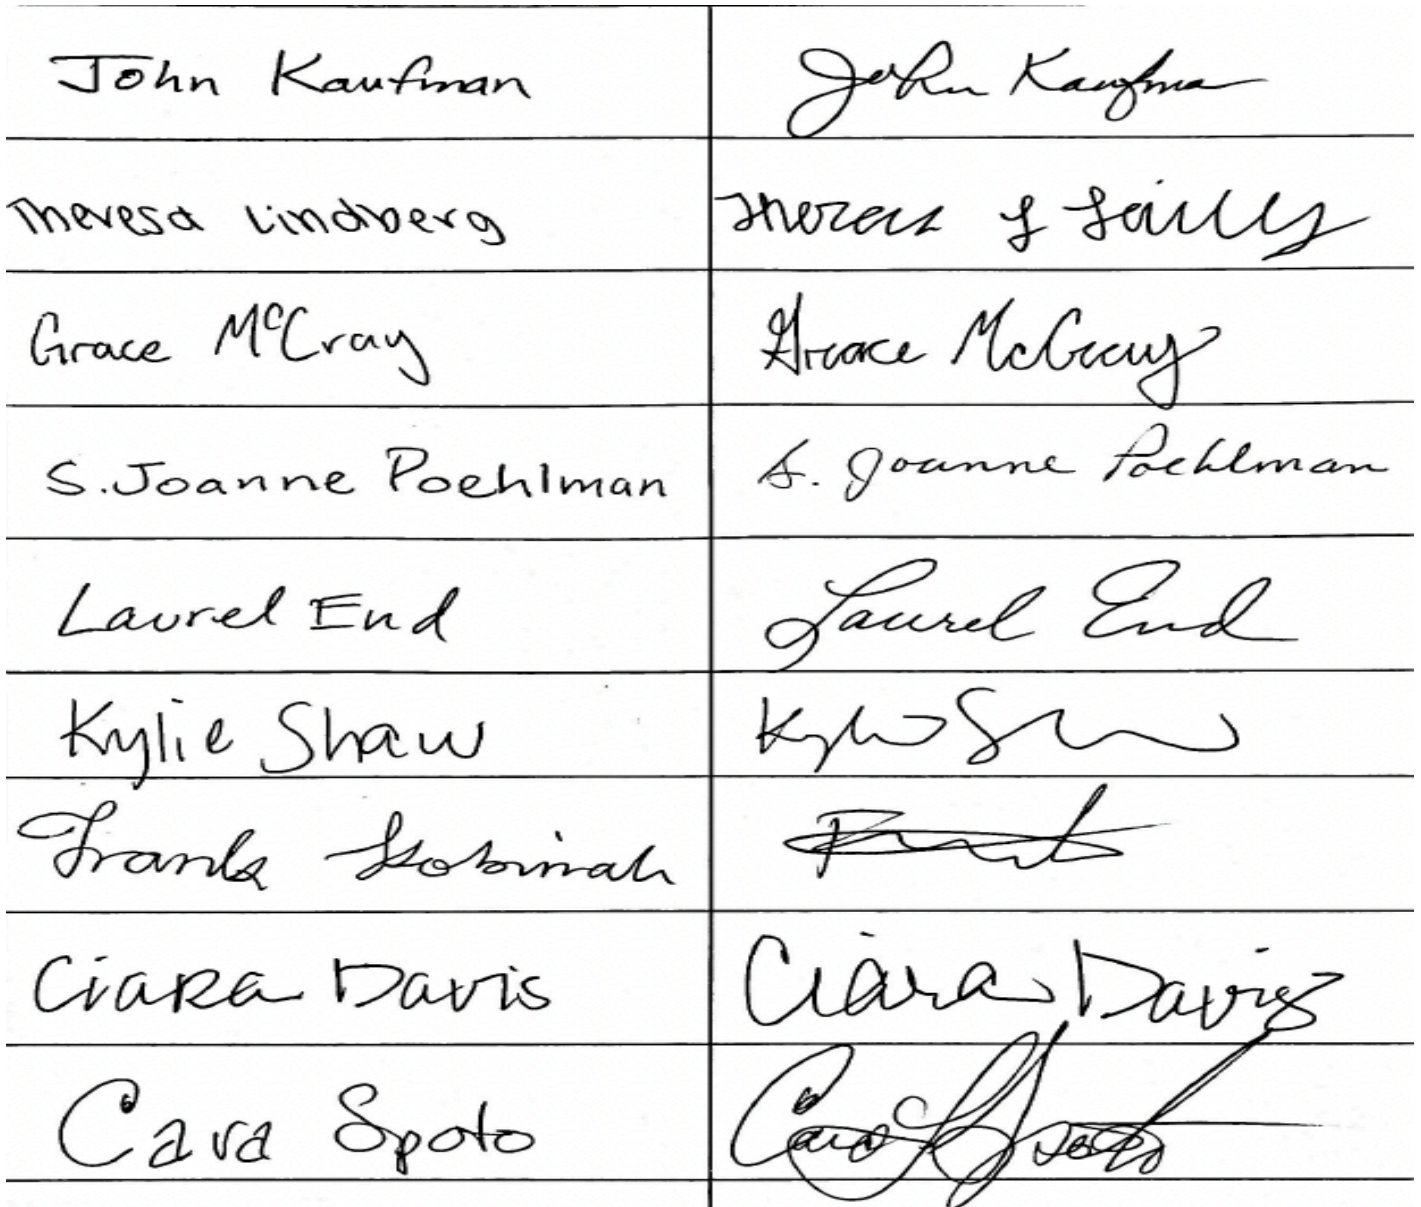 John Kaufman John Kaufman
Theresa Lindberg
Grace McCray Grace McCray
S. Joanne Poehlman S. Joanne Poehlman
Laurel End Laurel End
Kylie Shaw Kylie Shaw
Frank
Ciara Davis Ciara Davis
Cara Spoto Cara Spoto